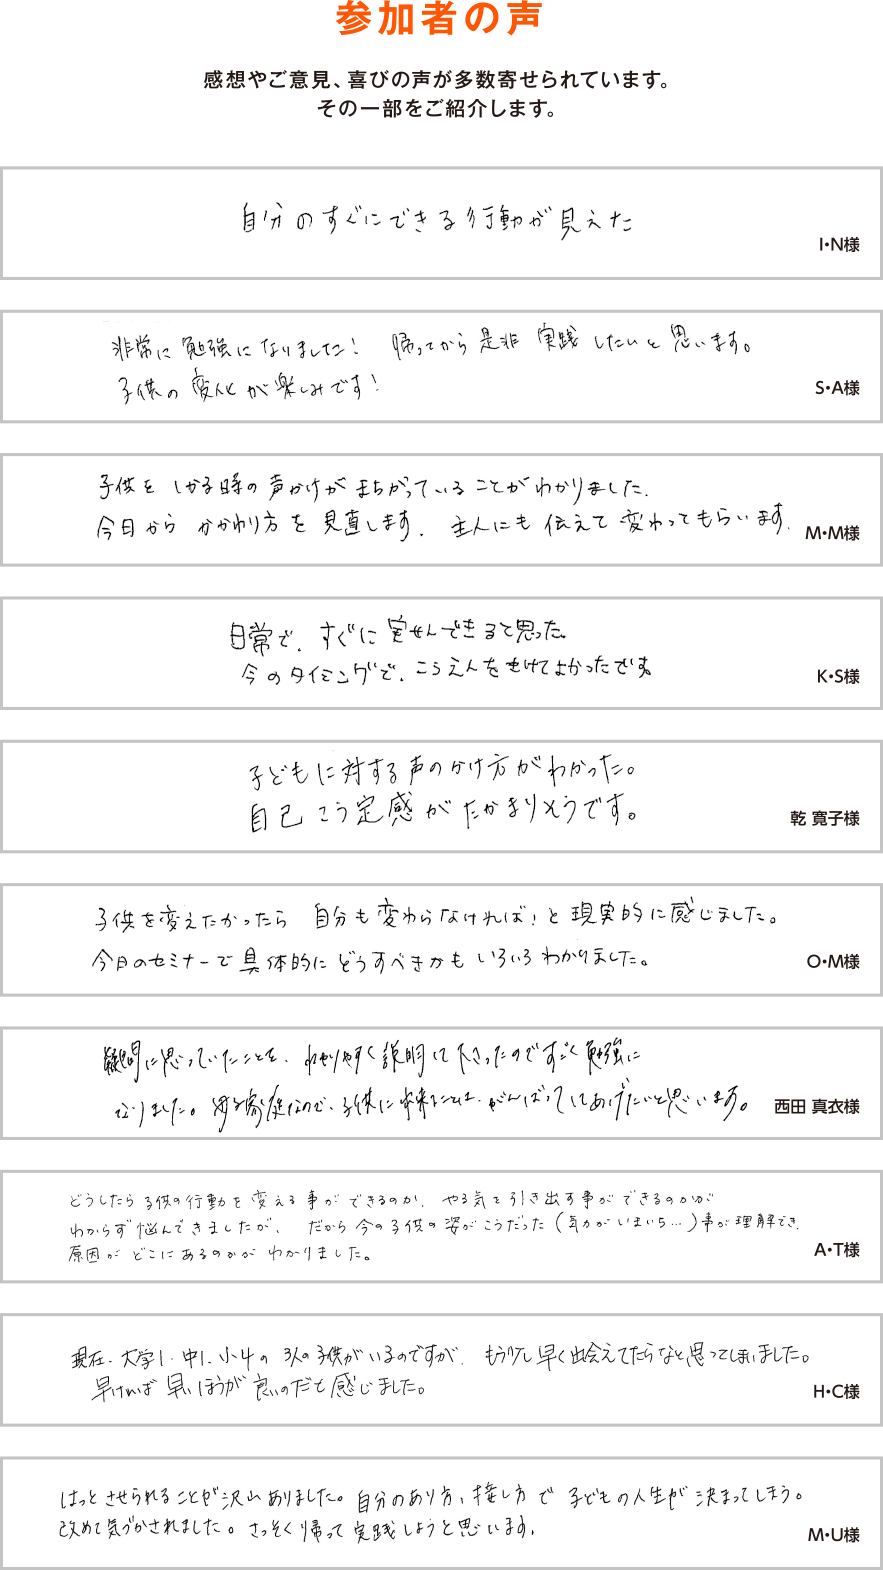 参加者の声
感想やご意見、喜びの声が多数寄せられています。
その一部をご紹介します。
自分のすぐにできる行動が見えた
I・N様
非常に勉強になりました! 帰ってから是非 実践 したいと思います。
子供の変化が楽しみです!
S・A様
子供を しかる時の声かけが まちがっていることがわかりました.
今日から かかわり方を見直します. 主人にも伝えて変わってもらいます.
M・M様
日常で、すぐに実せんできると思った。
今のタイミングで、こうえんをきけてよかったです。
K・S様
子どもに対する声のかけ方がわかった。
自己こう定感がたかまりそうです。
乾 寛子様
子供を変えたかったら 自分も変わらなければ!と現実的に感じました。
今日のセミナーで具体的にどうすべきかも いろいろ わかりました。
O・M様
疑問に思っていたことを、わかりやすく説明して下さったのですごく勉強に
なりました。 家庭なので、子供に 、がんばってしてあげたいと思います。
西田 真衣様
どうしたら子供の行動を変える事ができるのか、やる気を引き出す事ができるのかが
わからず悩んできましたが、だから今の子供の姿がこうだった(気力がいまいち…)事が理解でき、
原因がどこにあるのかがわかりました。
A・T様
現在、大学1、中1、小4の3人の子供がいるのですが、もう少し早く出会えてたらなと思ってしまいました。
早ければ早いほうが良いのだと感じました。
H・C様
はっとさせられることが沢山ありました。自分のあり方、接し方で子どもの人生が決まってしまう。
改めて気づかされました。さっそく帰って実践しようと思います。
M・U様